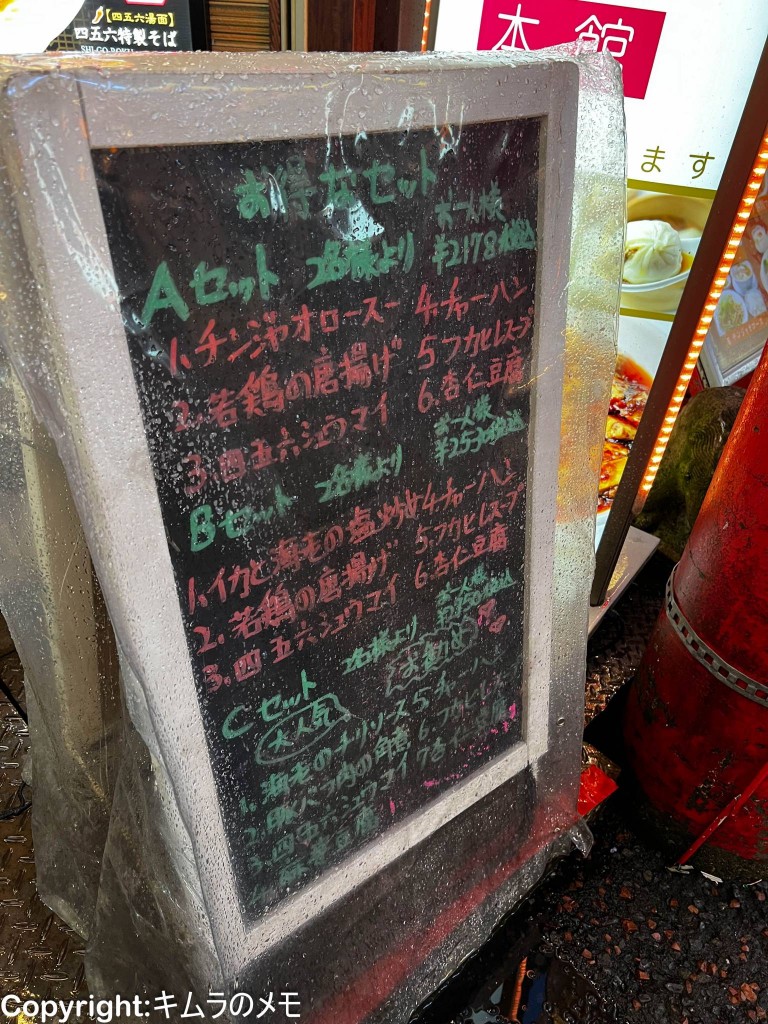 【四五六湯面】
四五六特製そば
SHI-GO-ROKU
本館
ます
お得なセット
Aセット 2名様より お一人様 ¥2178税込
1.チンジャオロースー 4.チャーハン
2.若鶏の唐揚げ 5フカヒレスープ
3.四五六シュウマイ 6.杏仁豆腐
Bセット 2名様より お一人様 ¥2530税込
1.イカと海老の塩炒め 4チャーハン
2.若鶏の唐揚げ 5.フカヒレスープ
3.四五六シュウマイ 6.杏仁豆腐
Cセット 2名様より お一人様
大人気 お勧め
1.海老のチリソース 5チャーハン
2.豚バラ肉の角煮 6.フカヒレ
3.四五六シュウマイ 7杏仁豆腐
4.麻婆豆腐
Copyright:キムラのメモ